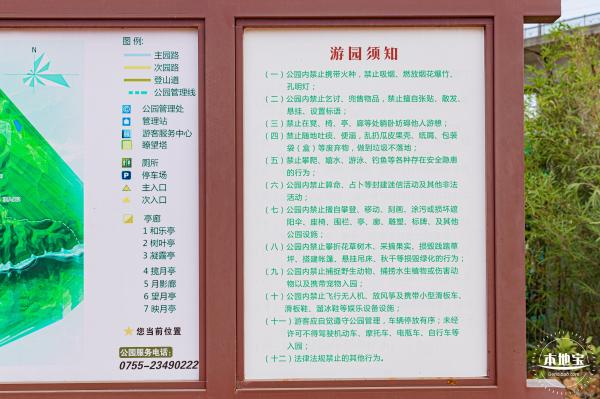 N
图例:
主园路
次园路
登山道
公园管理线
公园管理处
管理站
游客服务中心
瞭望塔
厕所
P 停车场
主入口
次入口
亭廊
1 和乐亭
2 树叶亭
3 凝露亭
4 揽月亭
5 月影廊
6 望月亭
7 映月亭
您当前位置
公园服务电话:
0755-23490222
游园须知
（一）公园内禁止携带火种，禁止吸烟、燃放烟花爆竹、
孔明灯；
（二）公园内禁止乞讨、兜售物品，禁止擅自张贴、散发、
悬挂、设置标语；
（三）禁止在凳、椅、亭、廊等处躺卧妨碍他人游憩；
（四）禁止随地吐痰、便溺，乱扔瓜皮果壳、纸屑、包装
袋（盒）等废弃物，做到垃圾不落地；
（五）禁止攀爬、嬉水、游泳、钓鱼等各种存在安全隐患
的行为；
（六）公园内禁止算命、占卜等封建迷信活动及其他非法
活动；
（七）公园内禁止擅自攀登、移动、刻画、涂污或损坏遮
阳伞、座椅、围栏、亭、廊、雕塑、标牌、及其他
公园设施；
（八）公园内禁止攀折花草树木、采摘果实、损毁践踏草
坪、搭建帐篷、悬挂吊床、秋千等损毁绿化的行为；
（九）公园内禁止捕捉野生动物、捕捞水生植物或伤害动
物以及携带宠物入园；
（十）公园内禁止飞行无人机、放风筝及携带小型滑板车、
滑板鞋、溜冰鞋等娱乐设备设施；
（十一）游客应自觉遵守公园管理，车辆停放有序；未经
许可不得驾驶机动车、摩托车、电瓶车、自行车等
入园；
（十二）法律法规禁止的其他行为。
本地宝